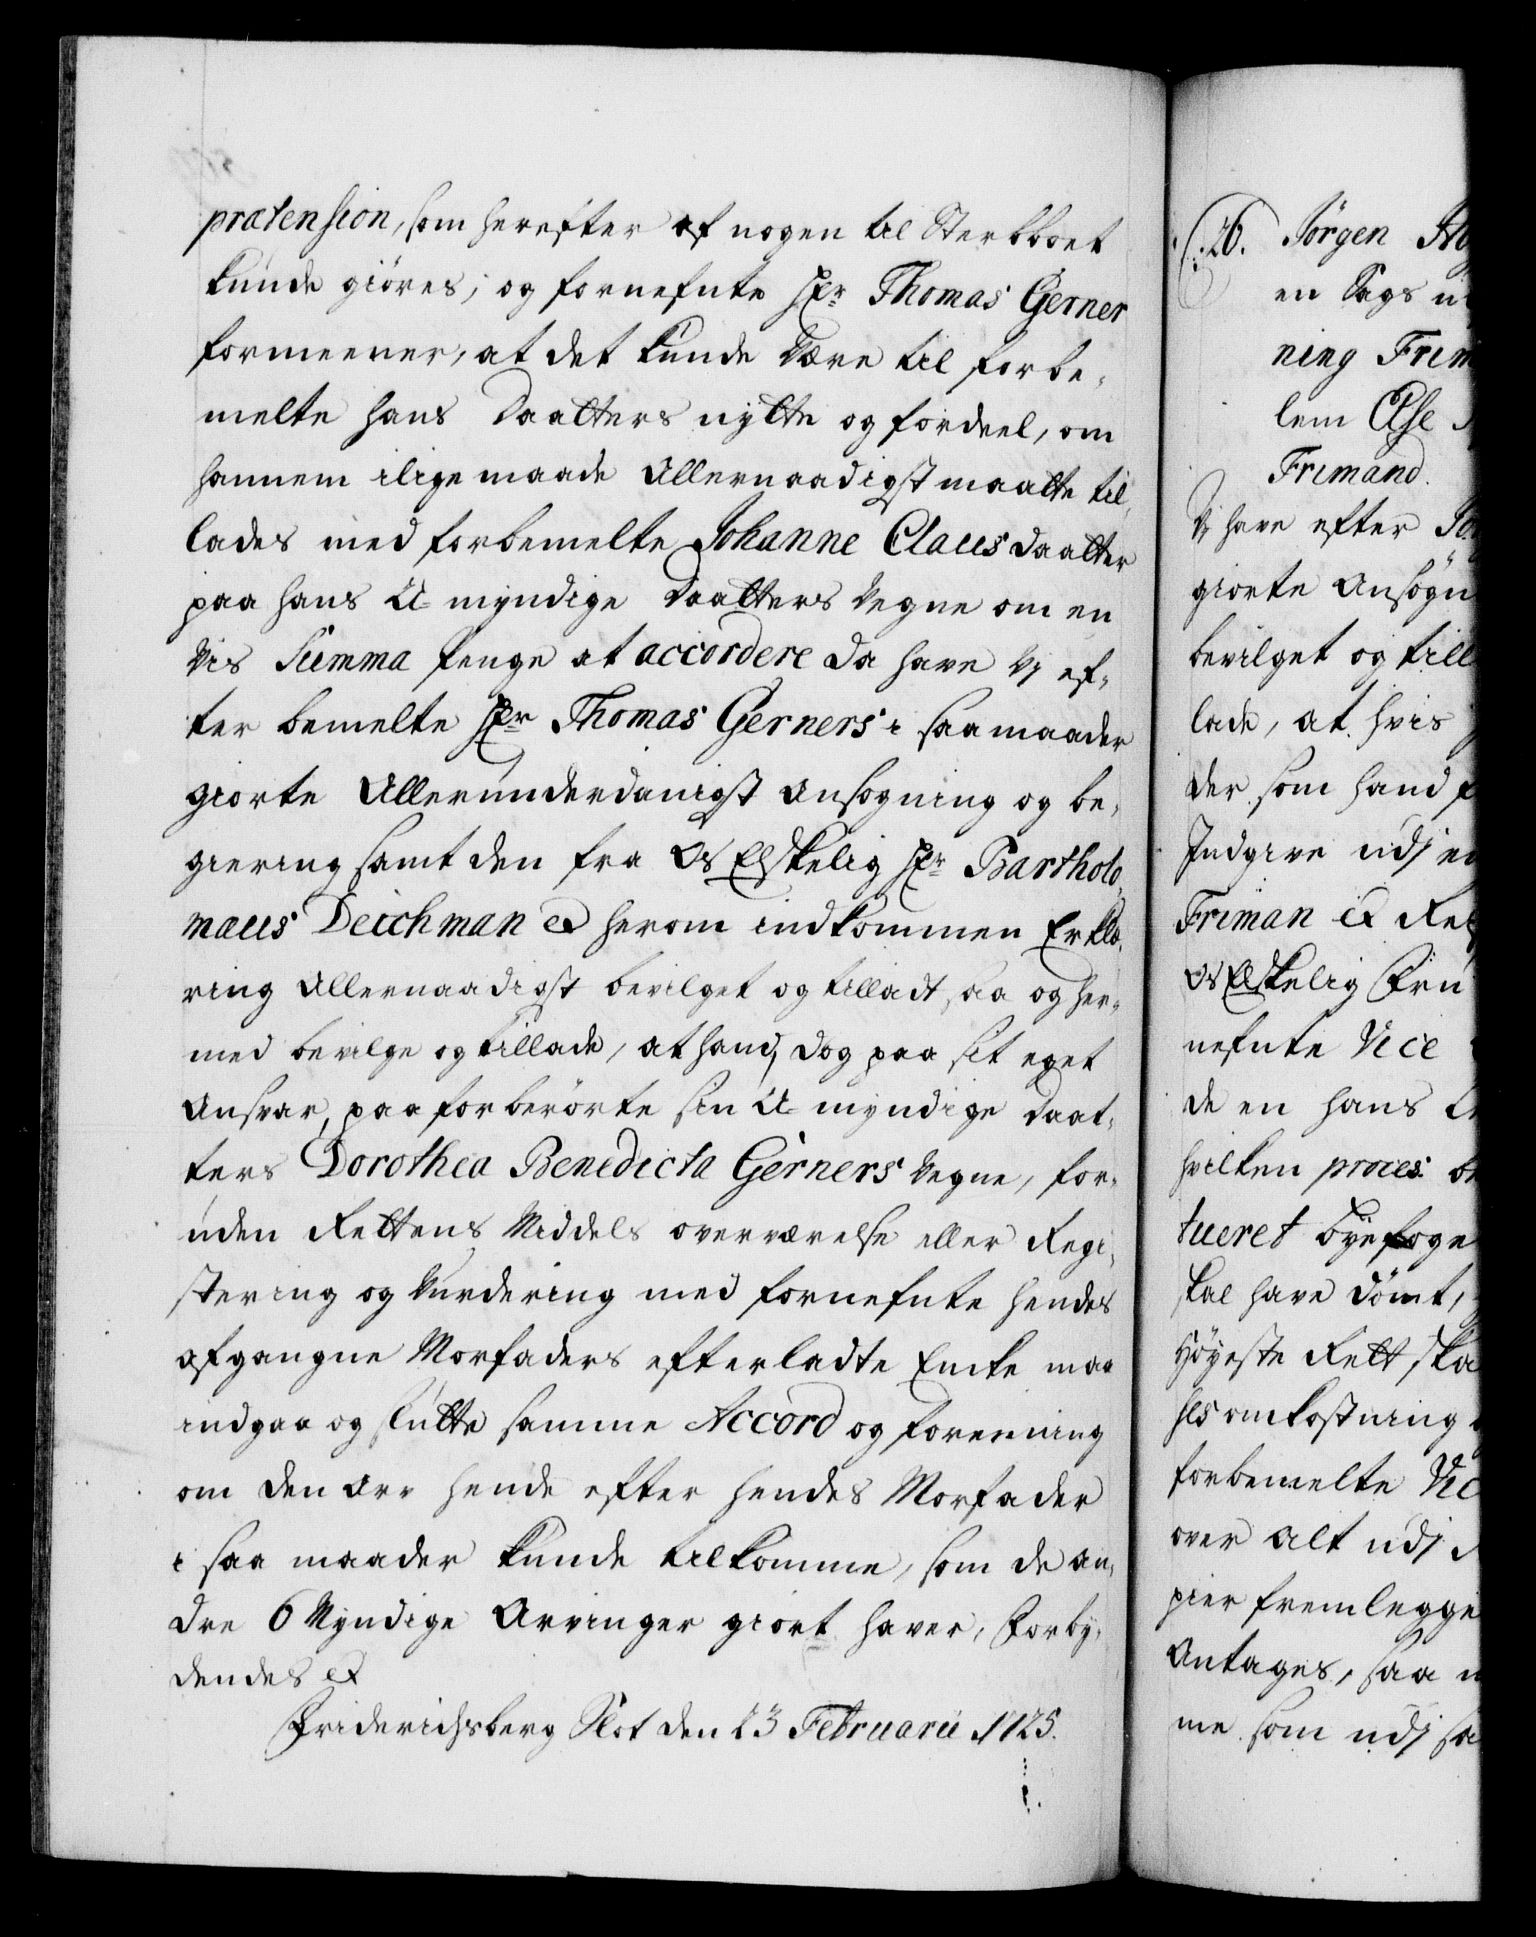 prætension, som herefter af nogen til Sterbboet
kunde giöres; og fornefnte Hr Thomas Gerner
formeener, at det kunde være til forbe¬
melte hans Daatters nytte og fordeel, om
hannem i lige maade Allernaadigst maatte til¬
lades med forbemelte Johanne Claus daatter
paa hans U-myndige Daatters Vegne om en
vis Summa Penge at accordere da have Vj ef¬
ter bemelte Hr Thomas Gerners i saa maader
giorte Allerunderdanigst Ansogning og be¬
giering samt den fra Os Elskelig Hr Bartholo¬
mæus Deichman &c herom indkommen Erklæ¬
ring Allernaadigst bevilget og tilladt, saa og her¬
med bevilge og tillade, at hand, dog paa sit eget
Ansvar, paa forberörte sin U-myndige Daat¬
ters Dorothea Benedicta Gerners Vegne, for¬
uden Rettens Middels overværelse eller Regi¬
stering og Vurdering med fornefnte hendes
afgangne Morfaders efterladte Encke maa
indgaa og slutte samme Accord og forreening
om den Arv hende efter hendes Morfader
i saa maader kunde tilkomme, som de an¬
dre 6 Myndige Arvinger giort haver, Forby¬
dendes &c
Friderichsberg Slot den 23 Februarii 1725.
26. Jörgen
en Sags
ning
lem Else
Frimand.
Vj have efter
giorte Ansögn
bevilget og till
lade, at hvis
der som hand
Indgive udj
Friman &c
Os Elskelig
nefnte Vice
de en hans
hvilken proces
tueret Byefoge
skal have dömt,
Höyeste Rett ska
sls omkostning
forbemelte
over alt udj
pier fremlegge
Antages, saa
me som udj